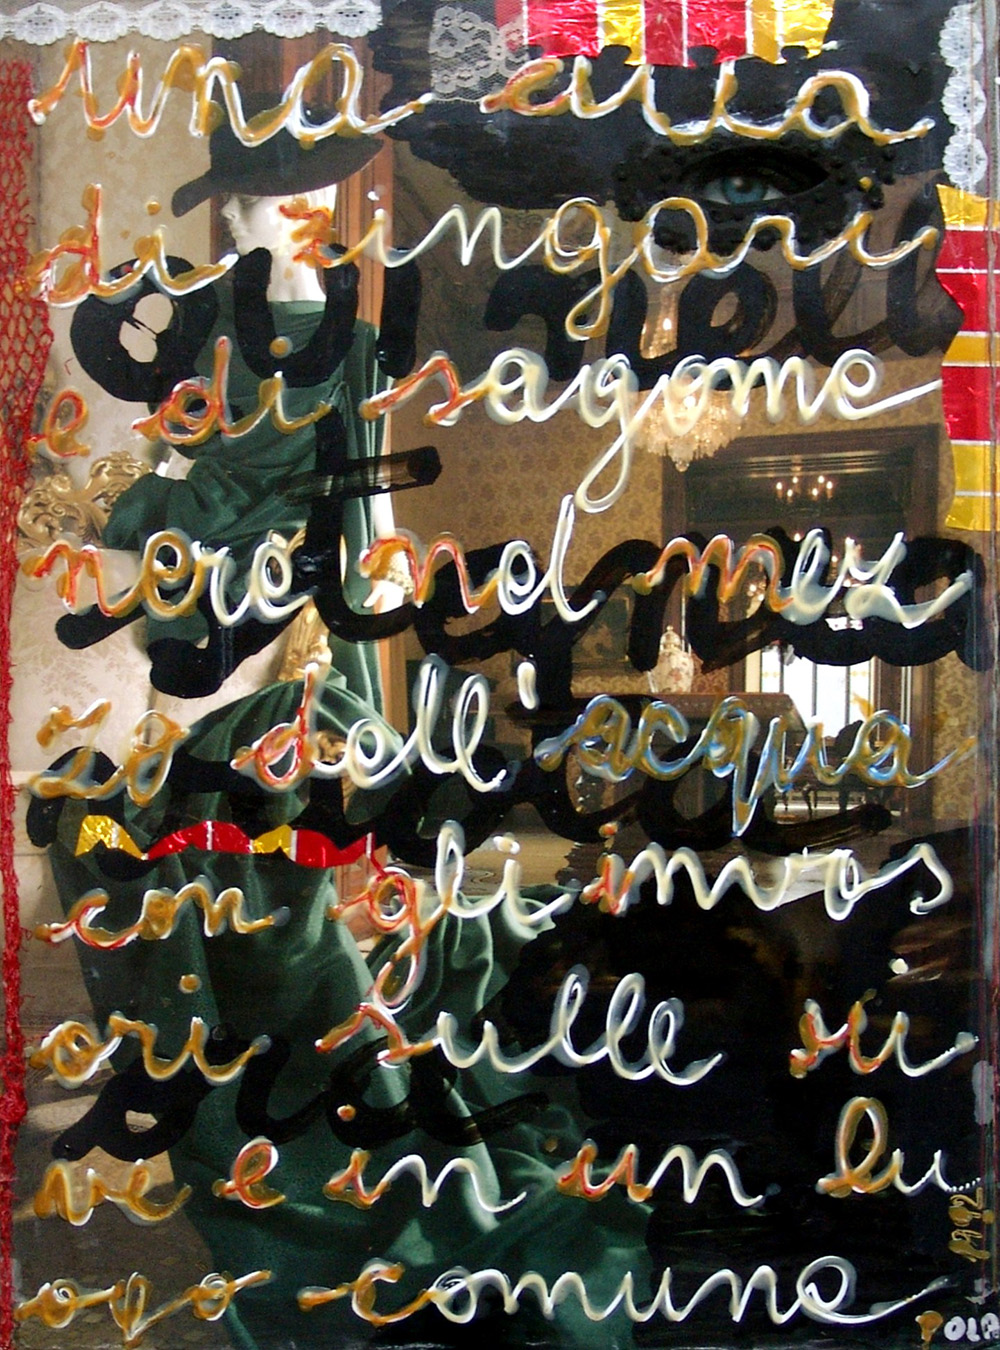 una città
di zingari
e di sagome
nere nel mez
zo dell'acqua
con gli invas
ori sulle ri
ve e in un lu
ogo comune
1992
POLA